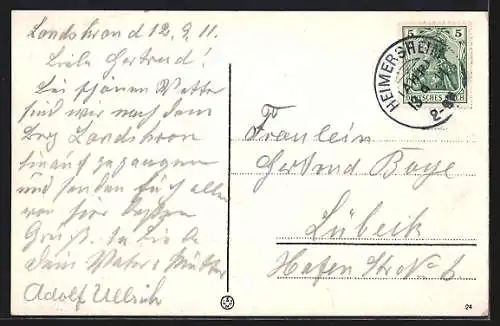 Landskrond 12.9.11.
Liebe Gertrud!
Bei schönem Wetter
sind wir nach dem
Berg Landskron
hinauf gegangen
und senden Euch allen
von hier besten
Gruß. In Liebe
Dein Vater u Mutter
Adolf Ullrich
Fräulein
Gertrud Boye
Lübeck
Hafen Str No 6
HEIMERSHEIM
5 5
DEUTSCHES REICH
24